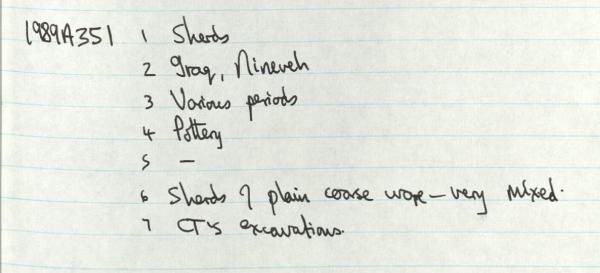 1989A351 1 Sherds
2 Iraq, Nineveh
3 Various periods
4 Pottery
5 —
6 Sherds of plain coarse ware – very mixed.
7 CT's excavations.